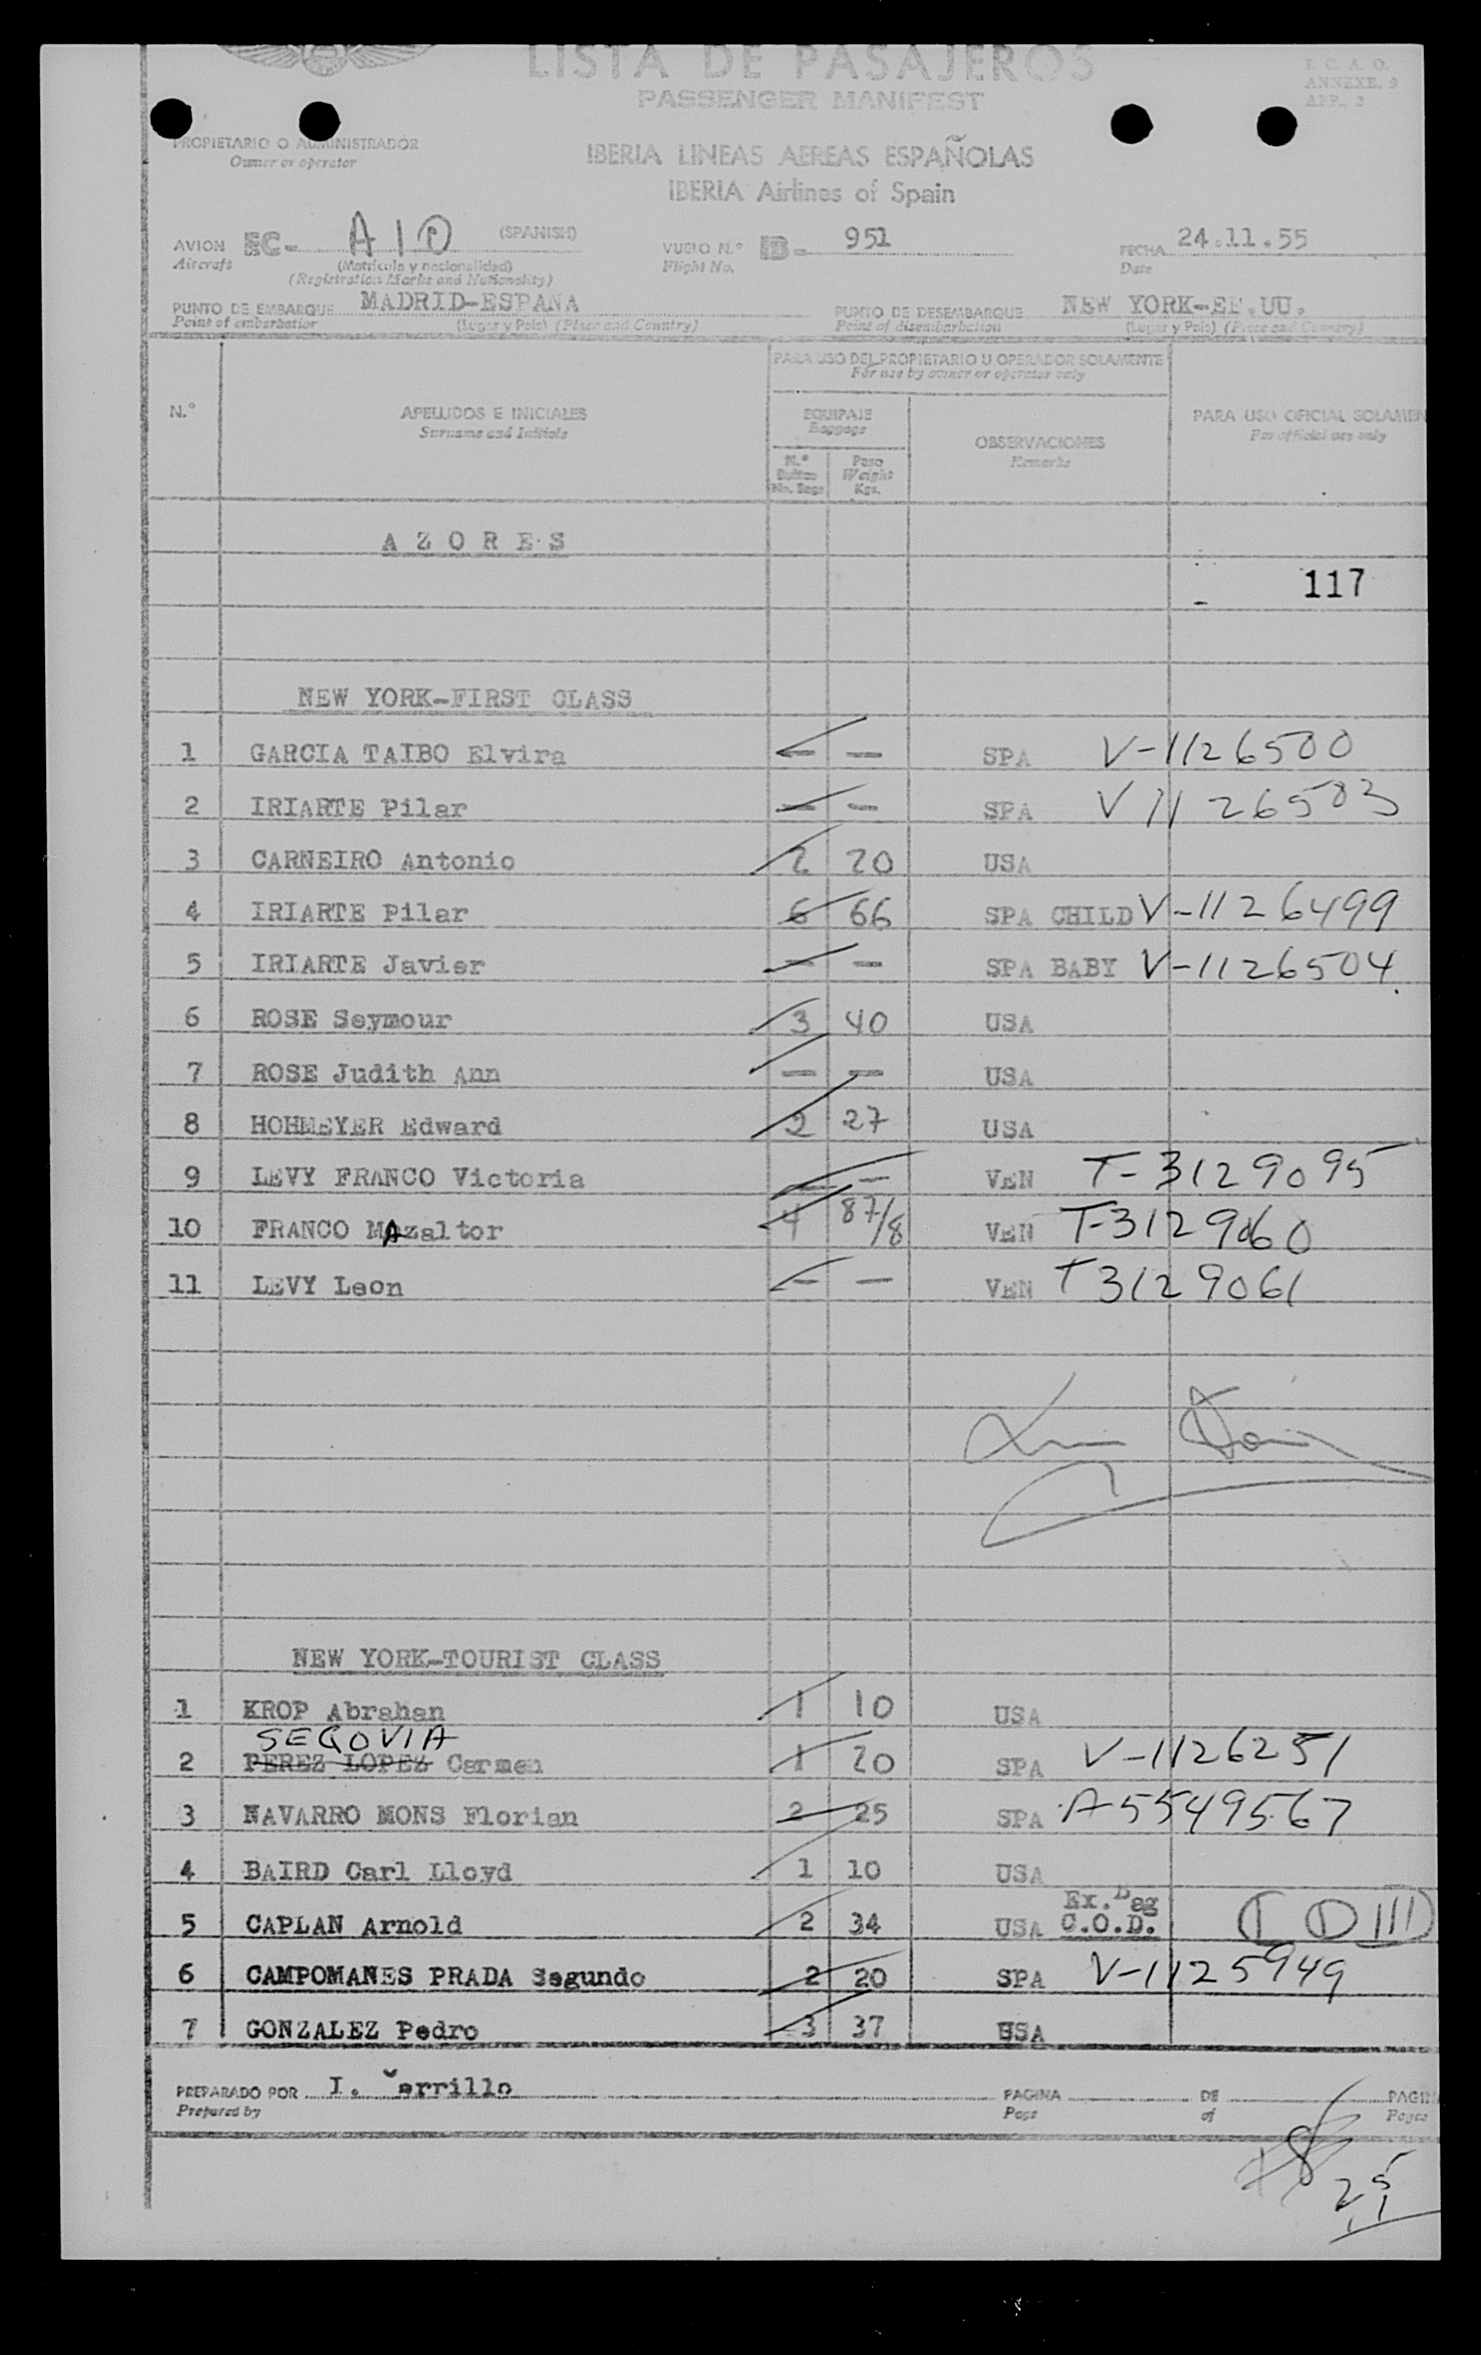 LISTA DE PASAJEROS
PASSENGER MANIFEST
I. C. A. O.
ANNEXE. 9
APP. 2
PROPIETARIO O ADMINISTRADOR
Owner or operator
IBERIA LINEAS AEREAS ESPAÑOLAS
IBERIA Airlines of Spain
AVION EC- AIO (SPANISH) VUELO N.° IB- 951 FECHA 24.11.55
Aircraft (Matrícula y nacionalidad) Flight No. Date
(Registration Marks and Nationality)
PUNTO DE EMBARQUE MADRID-ESPANA PUNTO DE DESEMBARQUE NEW YORK-EE.UU.
Point of embarkation (Lugar y País) (Place and Country) Point of disembarkation (Lugar y País) (Place and Country)
PARA USO DEL PROPIETARIO U OPERADOR SOLAMENTE
For use by owner or operator only
N.° APELLIDOS E INICIALES EQUIPAJE OBSERVACIONES PARA USO OFICIAL SOLAMEN
Surname and Initials Baggage Remarks For official use only
N.° Bultos Peso
No. Bags Weight Kgs.
AZORES
117
NEW YORK-FIRST CLASS
1 GARCIA TAIBO Elvira — — SPA V-1126500
2 IRIARTE Pilar — — SPA V1126503
3 CARNEIRO Antonio 2 20 USA
4 IRIARTE Pilar 6 66 SPA CHILD V-1126499
5 IRIARTE Javier — — SPA BABY V-1126504
6 ROSE Seymour 3 40 USA
7 ROSE Judith Ann — — USA
8 HOHMEYER Edward 2 27 USA
9 LEVY FRANCO Victoria — — VEN T-3129095
10 FRANCO MAzaltor 4 87/8 VEN T-3129060
11 LEVY Leon — — VEN T3129061
NEW YORK-TOURIST CLASS
1 KROP Abrahan 1 10 USA
SEGOVIA
2 PEREZ LOPEZ Carmen 1 20 SPA V-1126251
3 NAVARRO MONS Florian 2 25 SPA A-5549567
4 BAIRD Carl Lloyd 1 10 USA
Ex. Bag
5 CAPLAN Arnold 2 34 USA C.O.D.
6 CAMPOMANES PRADA Segundo 2 20 SPA V-1125949
7 GONZALEZ Pedro 3 37 USA
PREPARADO POR I. Carrillo PAGINA DE PAGIN
Prepared by Page of Pages
25